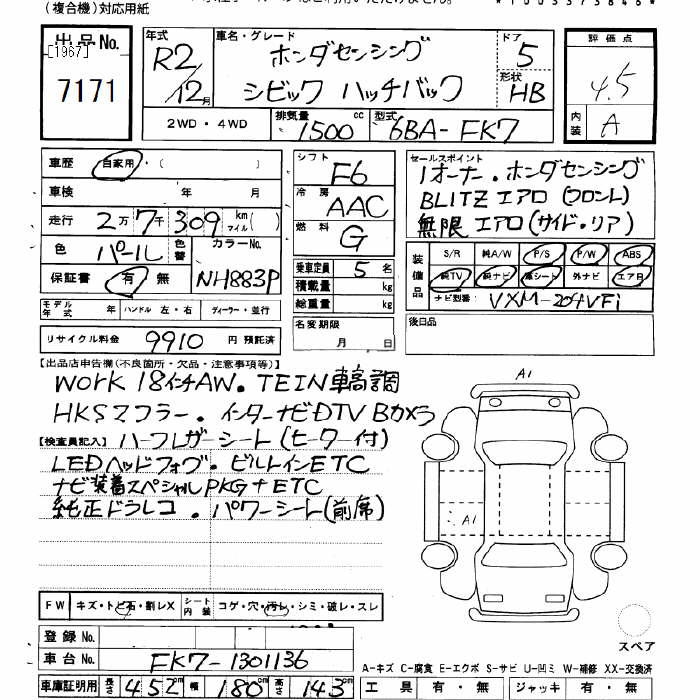 (複合機)対応用紙
出品No.
[1967]
7171
年式 R2/12月
車名・グレード ホンダセンシング
シビック ハッチバック
ドア 5
形状 HB
評価点 4.5
内装 A
2WD・4WD
排気量 1500cc
型式 6BA-FK7
車歴 自家用・( )
車検 年 月
走行 2万7千309km マイル( )
色 パール
色替
カラーNo. NH883P
保証書 有 無
シフト F6
冷房 AAC
燃料 G
乗車定員 5名
積載量 kg
総重量 kg
セールスポイント
1オーナー・ホンダセンシング
BLITZ エアロ (フロント)
無限 エアロ(サイド・リア)
装備品
S/R 純A/W P/S P/W ABS
純TV 純ナビ 革シート 外ナビ エアB
ナビ型番 VXM-204VFi
モデル年式 年
ハンドル 左・右
ディーラー・並行
名変期限 月 日
後日品
リサイクル料金 9910 円 預託済
【出品店申告欄(不良箇所・欠品・注意事項等)】
WORK 18インチAW・TEIN車高調
HKSマフラー・インターナビDTV Bカメラ
【検査員記入】ハーフレザーシート(ヒーター付)
LEDヘッドフォグ・ビルトインETC
ナビ装着スペシャルPKG+ETC
純正ドラレコ・パワーシート(前席)
A1
A1
スペア
FW キズ・トビ石・割レX
シート内装 コゲ・穴・汚レ・シミ・破レ・スレ
登録No.
車台No. FK7-1301136
A-キズ C-腐食 E-エクボ S-サビ U-凹ミ W-補修 XX-交換済
車庫証明用 長さ 452cm 幅 180cm 高さ 143cm
工具 有・無
ジャッキ 有・無